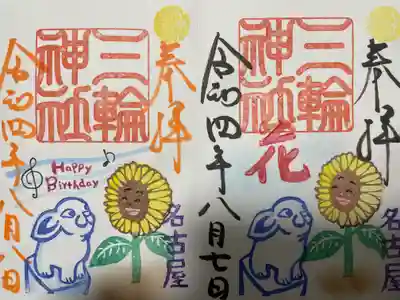 奉拝
三輪
神社
令和四年八月八日
Happy
Birthday
名古屋
奉拝
三輪
神社
花
令和四年八月七日
名古屋